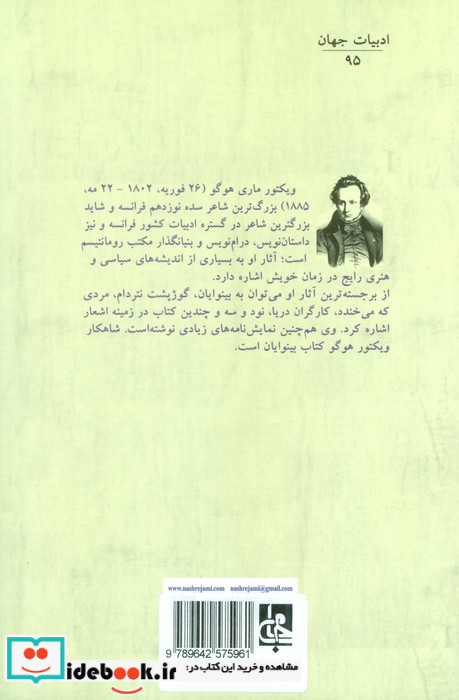 ادبیات جهان
۹۵
ویکتور ماری هوگو (۲۶ فوریه، ۱۸۰۲ - ۲۲ مه،
۱۸۸۵) بزرگ‌ترین شاعر سده نوزدهم فرانسه و شاید
بزرگترین شاعر در گستره ادبیات کشور فرانسه و نیز
داستان‌نویس، درام‌نویس و بنیانگذار مکتب رومانتیسم
است؛ آثار او به بسیاری از اندیشه‌های سیاسی و
هنری رایج در زمان خویش اشاره دارد.
از برجسته‌ترین آثار او می‌توان به بینوایان، گوژپشت نتردام، مردی
که می‌خندد، کارگران دریا، نود و سه و چندین کتاب در زمینه اشعار
اشاره کرد. وی هم‌چنین نمایش‌نامه‌های زیادی نوشته‌است. شاهکار
ویکتور هوگو کتاب بینوایان است.
www.nashrejami.com nashrejami@gmail.com
9 789642 575961
جامی
مشاهده و خرید این کتاب در:
idebook.ir